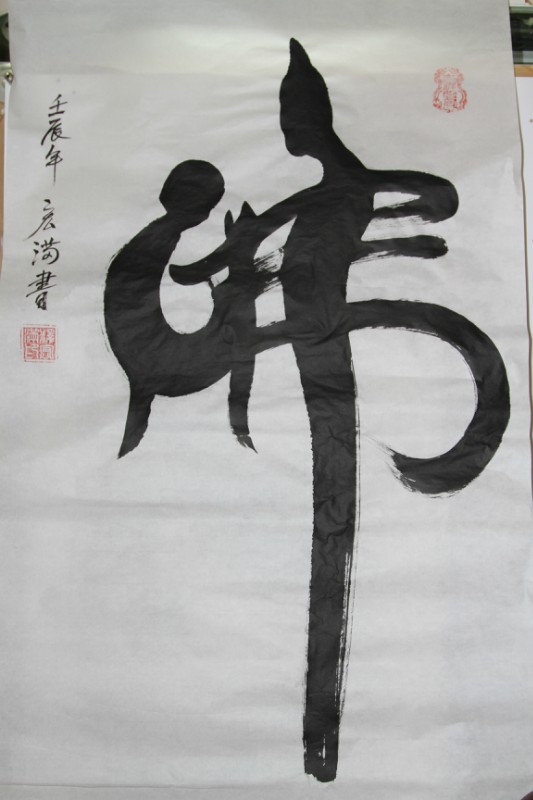 佛
壬辰年 宏满書